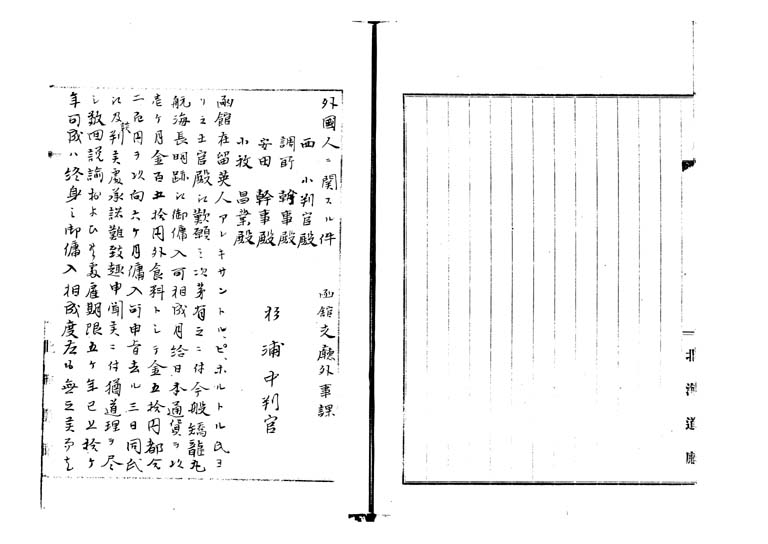 北海道廳
外國人ニ関スル件 函館支廳外事課
西 小判官殿
調所 幹事殿
安田 幹事殿
小牧 昌業殿
杉浦中判官
函館在留英人アレキサントル、ピ、ホルトル氏ヨ
リ之王官殿江歎願ミ次第有之ニ付今般矯龍丸
航海長明跡江御傭入可相成月給日本通貨ヲ以
壱ヶ月金百五拾円外食料トシテ金五拾円都合
二百円ヲ以向六ヶ月傭入可申旨去ル三日同氏
江及談判候處承諾難致趣申聞候ニ付猶道理ヲ尽
シ数回説諭およひ候處雇期限五ヶ年已上拾ヶ
年可成ハ終身之御傭入相成度左も無之候而は